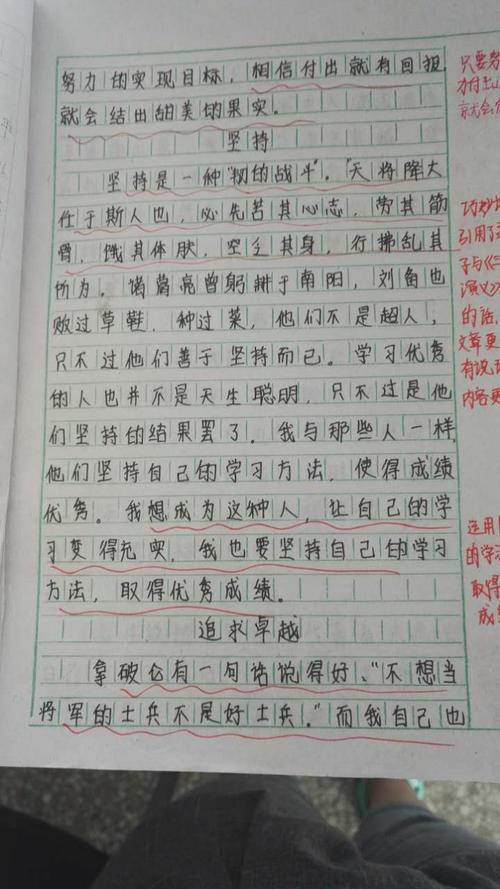 努力的实现目标，相信付出就有回报
就会结出甜美的果实。
坚持
坚持是一种"韧的战斗"。"天将降大
任于斯人也，必先苦其心志，劳其筋
骨，饿其体肤，空乏其身，行拂乱其
所为。诸葛亮曾躬耕于南阳，刘备也
败过草鞋，种过菜，他们不是超人，
只不过他们善于坚持而已。学习优秀
的人也并不是天生聪明，只不过是他
们坚持的结果罢了。我与那些人一样，
他们坚持自己的学习方法，使得成绩
优秀。我想成为这种人，让自己的学
习变得充实，我也要坚持自己的学习
方法，取得优秀成绩。
追求卓越
拿破仑有一句话说得好、"不想当
将军的士兵不是好士兵。"而我自己也
只要努
力付出
就会
巧妙
引用了
子与《三
演义》
的话，
文章更
有说
内容更
运用
的学
取得
成